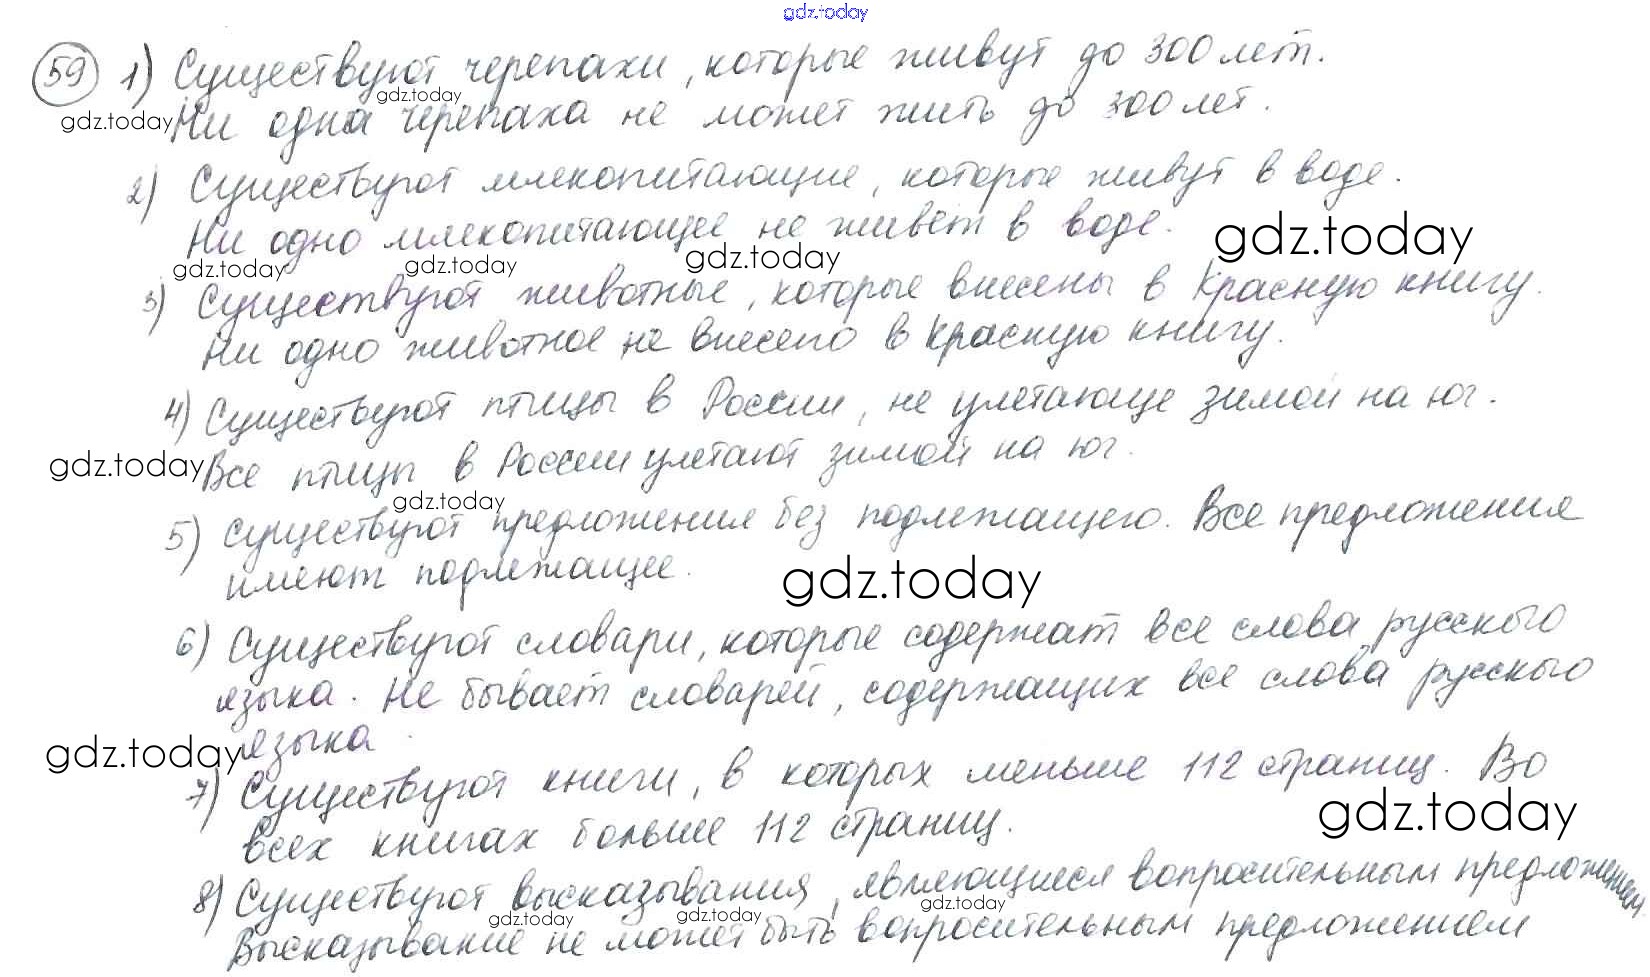 gdz.today
59 1) Существуют черепахи, которые живут до 300 лет.
gdz.today
gdz.today Ни одна черепаха не может жить до 300 лет.
2) Существуют млекопитающие, которые живут в воде.
Ни одно млекопитающее не живет в воде. gdz.today
gdz.today gdz.today gdz.today
3) Существуют животные, которые внесены в Красную книгу.
Ни одно животное не внесено в Красную книгу.
4) Существуют птицы в России, не улетающие зимой на юг.
gdz.today Все птицы в России улетают зимой на юг.
gdz.today
5) Существуют предложения без подлежащего. Все предложения
имеют подлежащее. gdz.today
6) Существуют словари, которые содержат все слова русского
языка. Не бывает словарей, содержащих все слова русского
gdz.today языка.
7) Существуют книги, в которых меньше 112 страниц. Во
всех книгах больше 112 страниц. gdz.today
8) Существуют высказывания, являющиеся вопросительным предложением.
gdz.today gdz.today gdz.today
Высказывание не может быть вопросительным предложением